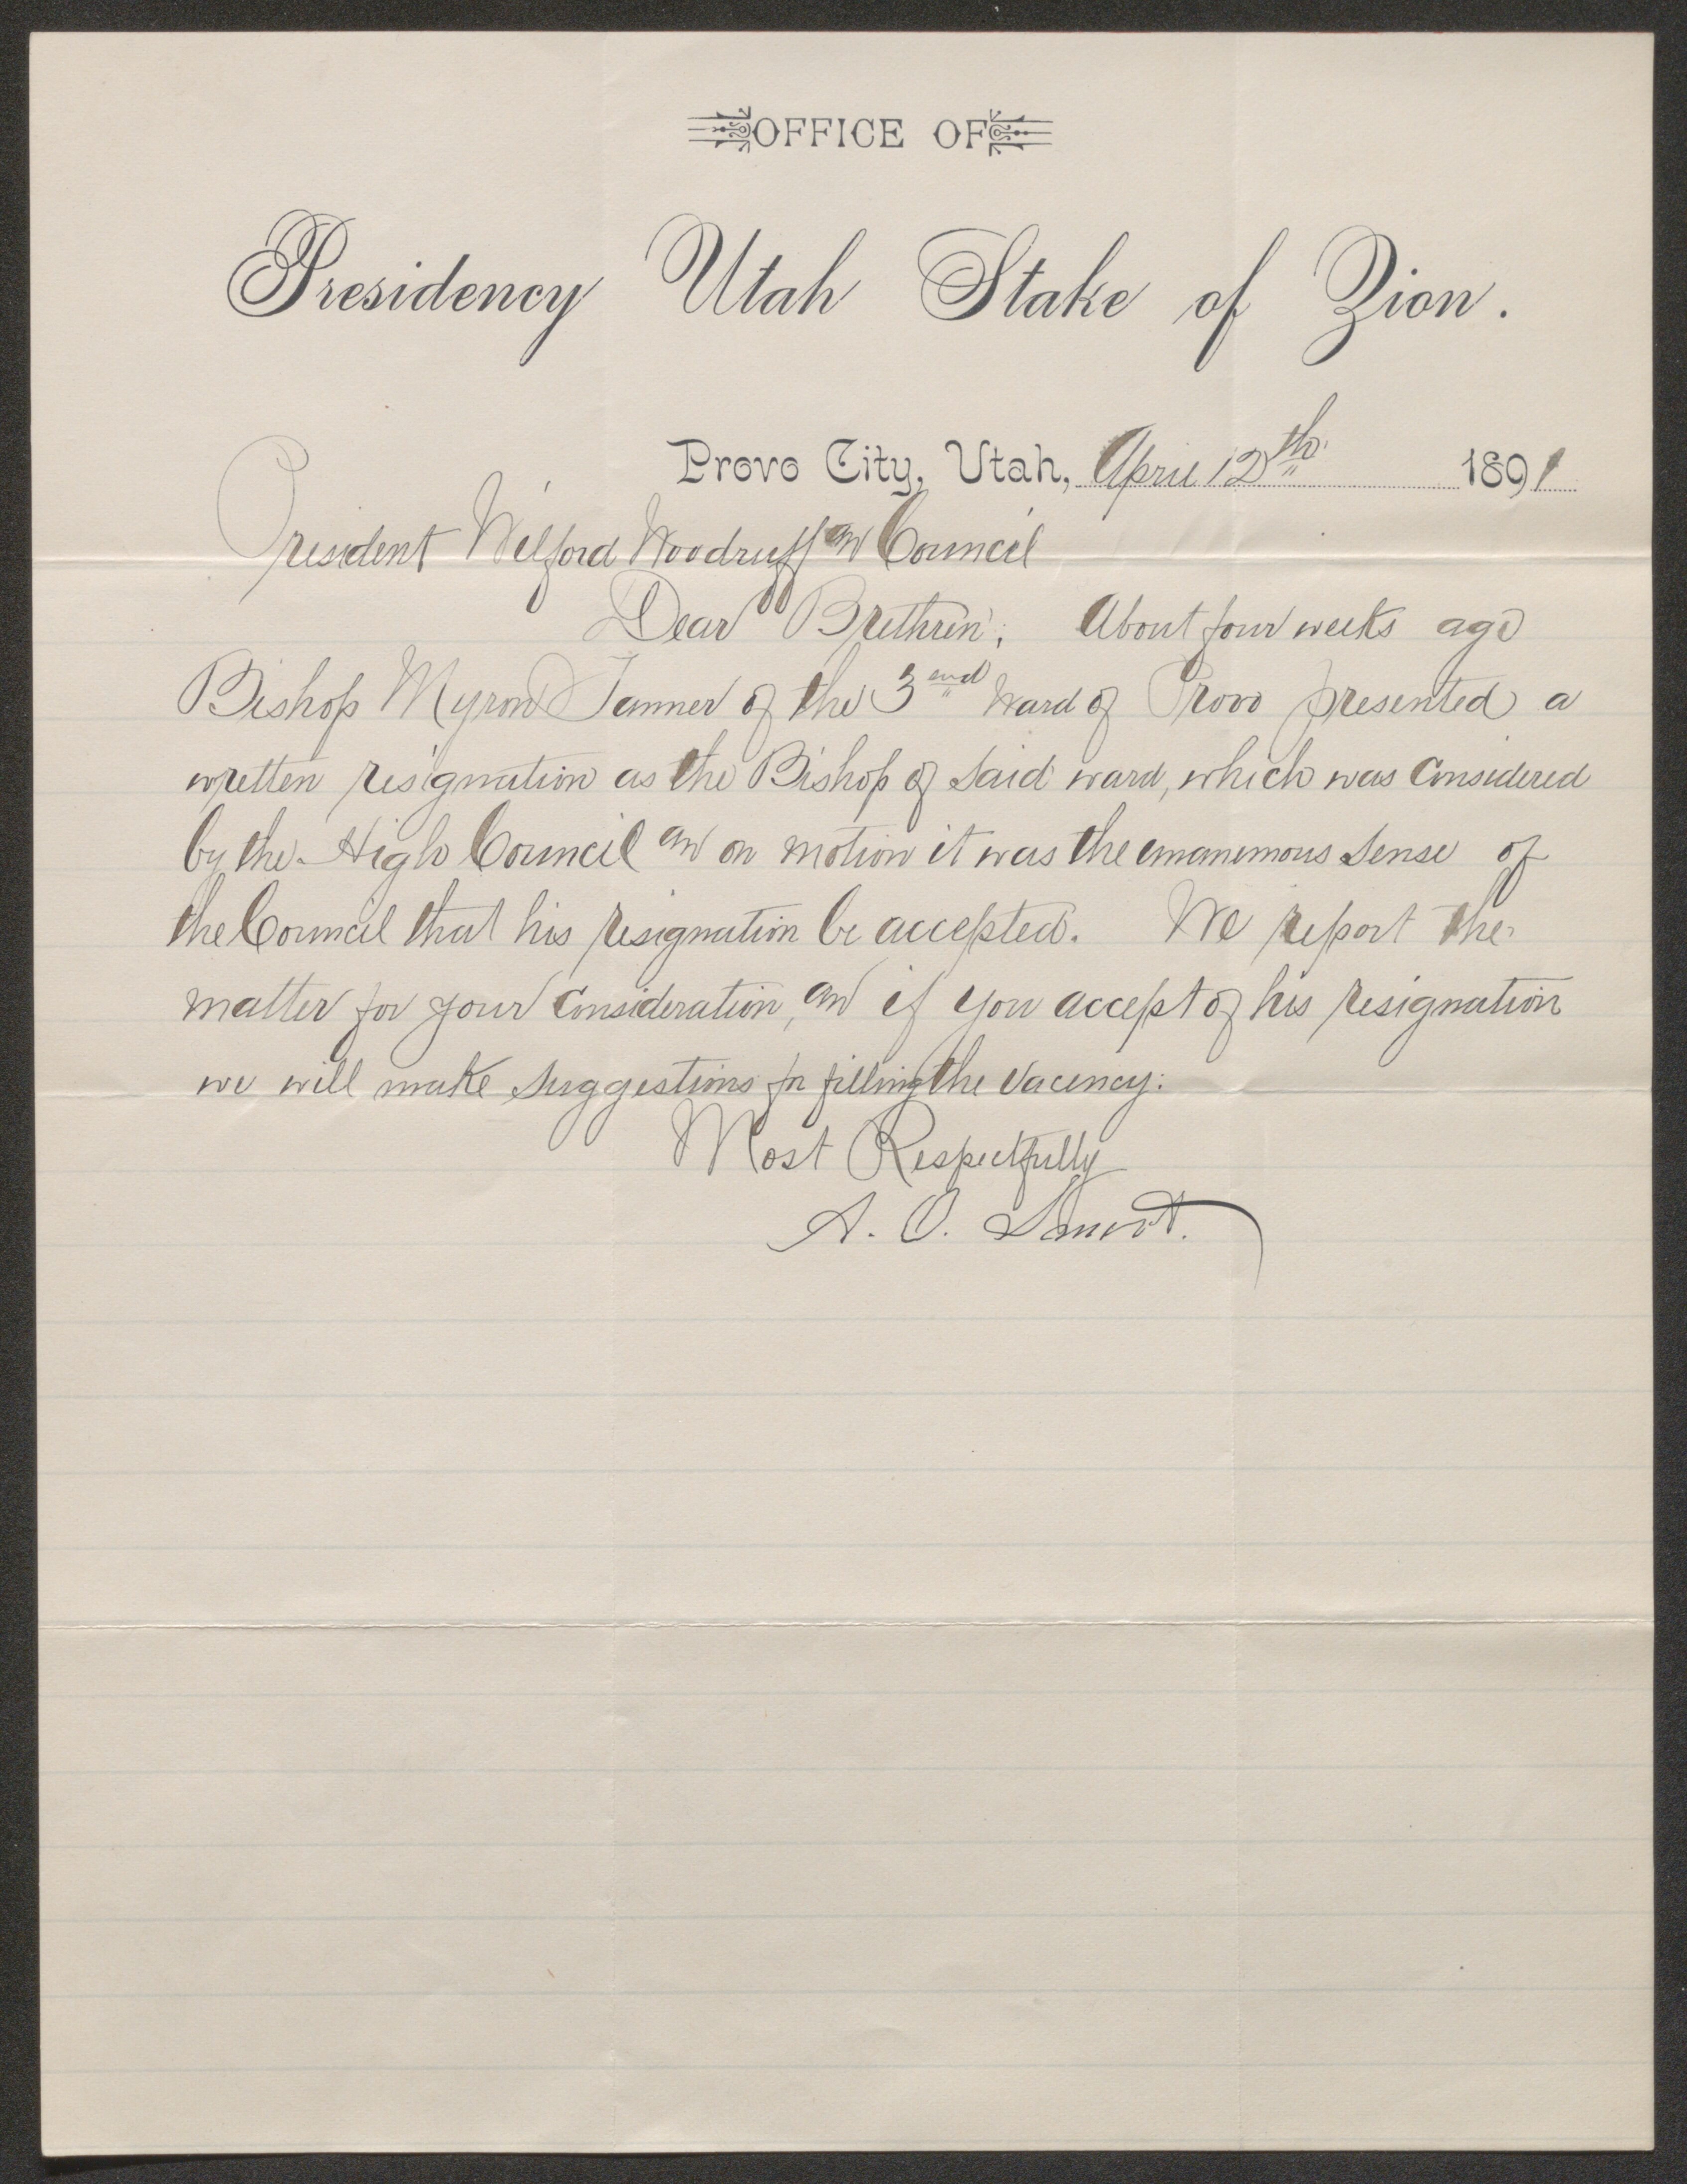 OFFICE OF
Presidency Utah Stake of Zion.
Provo City, Utah, April 12th 1891
President Wilford Woodruff an Council
Dear Brethren; About four weeks ago
Bishop Myron Tanner of the 3 end Ward of Provo presented a
written resignation as the Bishop of Said ward, which was Considered
by the High Council an on motion it was the emanemous Sense of
the Council that his resignation be accepted. We report the
matter for your Consideration, an if you accept of his resignation
we will make Suggestions for filling the Vacency.
Most Respectfully
A. O. Smoot.